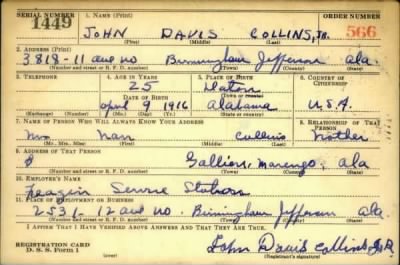 SERIAL NUMBER 1. NAME (Print) ORDER NUMBER
1449 JOHN DAVIS COLLINS, JR. 566
(First) (Middle) (Last)
2. ADDRESS (Print)
3818-11 ave no Birmingham Jefferson ala.
(Number and street or R. F. D. number) (Town) (County) (State)
3. TELEPHONE 4. AGE IN YEARS 5. PLACE OF BIRTH 6. COUNTRY OF CITIZENSHIP
25 Dayton
DATE OF BIRTH (Town or county)
april 9 1916 Alabama U.S.A.
(Exchange) (Number) (Mo.) (Day) (Yr.) (State or country)
7. NAME OF PERSON WHO WILL ALWAYS KNOW YOUR ADDRESS 8. RELATIONSHIP OF THAT PERSON
Mrs Nan Collins Mother
(Mr., Mrs., Miss) (First) (Middle) (Last)
9. ADDRESS OF THAT PERSON
Gallion, Marengo, ala
(Number and street or R. F. D. number) (Town) (County) (State)
10. EMPLOYER'S NAME
Feagin Service Stations
11. PLACE OF EMPLOYMENT OR BUSINESS
2531-12 ave no. Birmingham Jefferson ala.
(Number and street or R. F. D. number) (Town) (County) (State)
I AFFIRM THAT I HAVE VERIFIED ABOVE ANSWERS AND THAT THEY ARE TRUE.
REGISTRATION CARD
D. S. S. Form 1 John Davis Collins Jr.